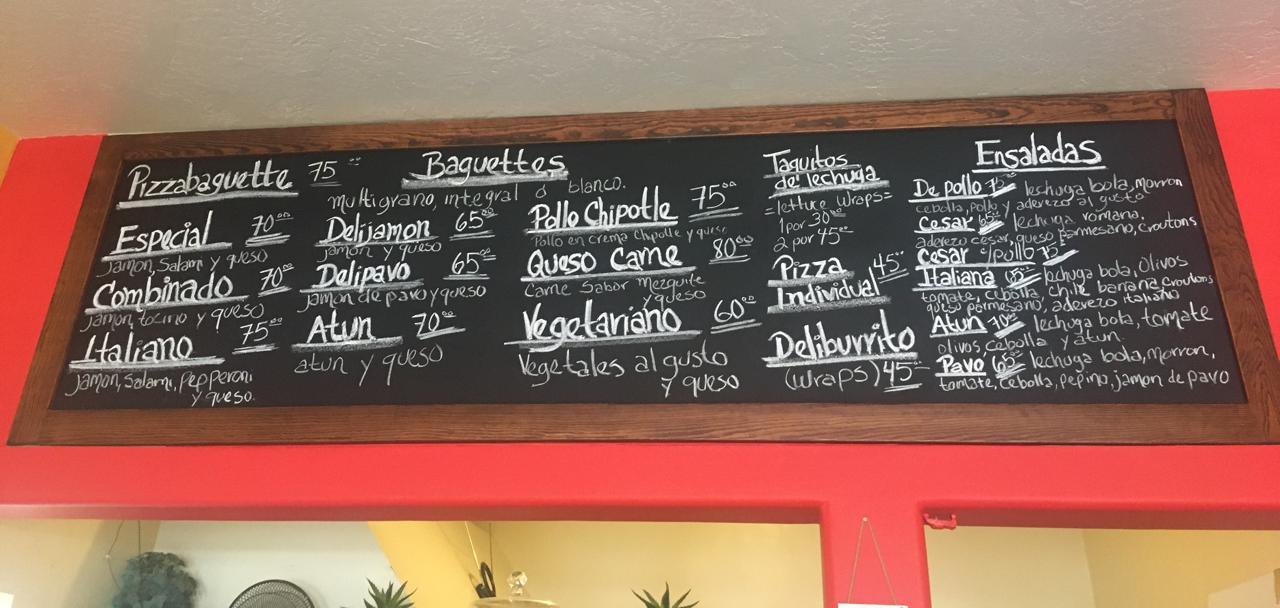 Pizzabaguette 75
Baguettes
multigrano, integral ó blanco.
Especial 70.00
jamon, Salami y queso
Combinado 70.00
jamon, tocino y queso
Italiano 75.00
jamon, Salami, Pepperoni
y queso.
Delijamon 65.00
jamon y queso
Delipavo 65.00
jamon de pavo y queso
Atun 70.00
atun y queso
Pollo Chipotle 75.00
Pollo en crema chipotle y queso
Queso Carne 80.00
Carne Sabor mezquite
y queso
Vegetariano 60.00
Vegetales al gusto
y queso
Taquitos
de lechuga
=lettuce wraps=
1 por 30.00
2 por 45.00
Pizza 45
Individual
Deliburrito
(wraps) 45
Ensaladas
De pollo 75 lechuga bola, morron
cebolla, pollo y aderezo al gusto
Cesar 65 lechuga romana,
aderezo cesar, queso parmesano, croutons
Cesar c/pollo 75
Italiana 65 lechuga bola, Olivos
tomate, cebolla, chile banana, croutons
queso parmesano, aderezo italiano
Atun 70 lechuga bola, tomate
olivos, cebolla y atun.
Pavo 65 lechuga bola, morron,
tomate, cebolla, pepino, jamon de pavo